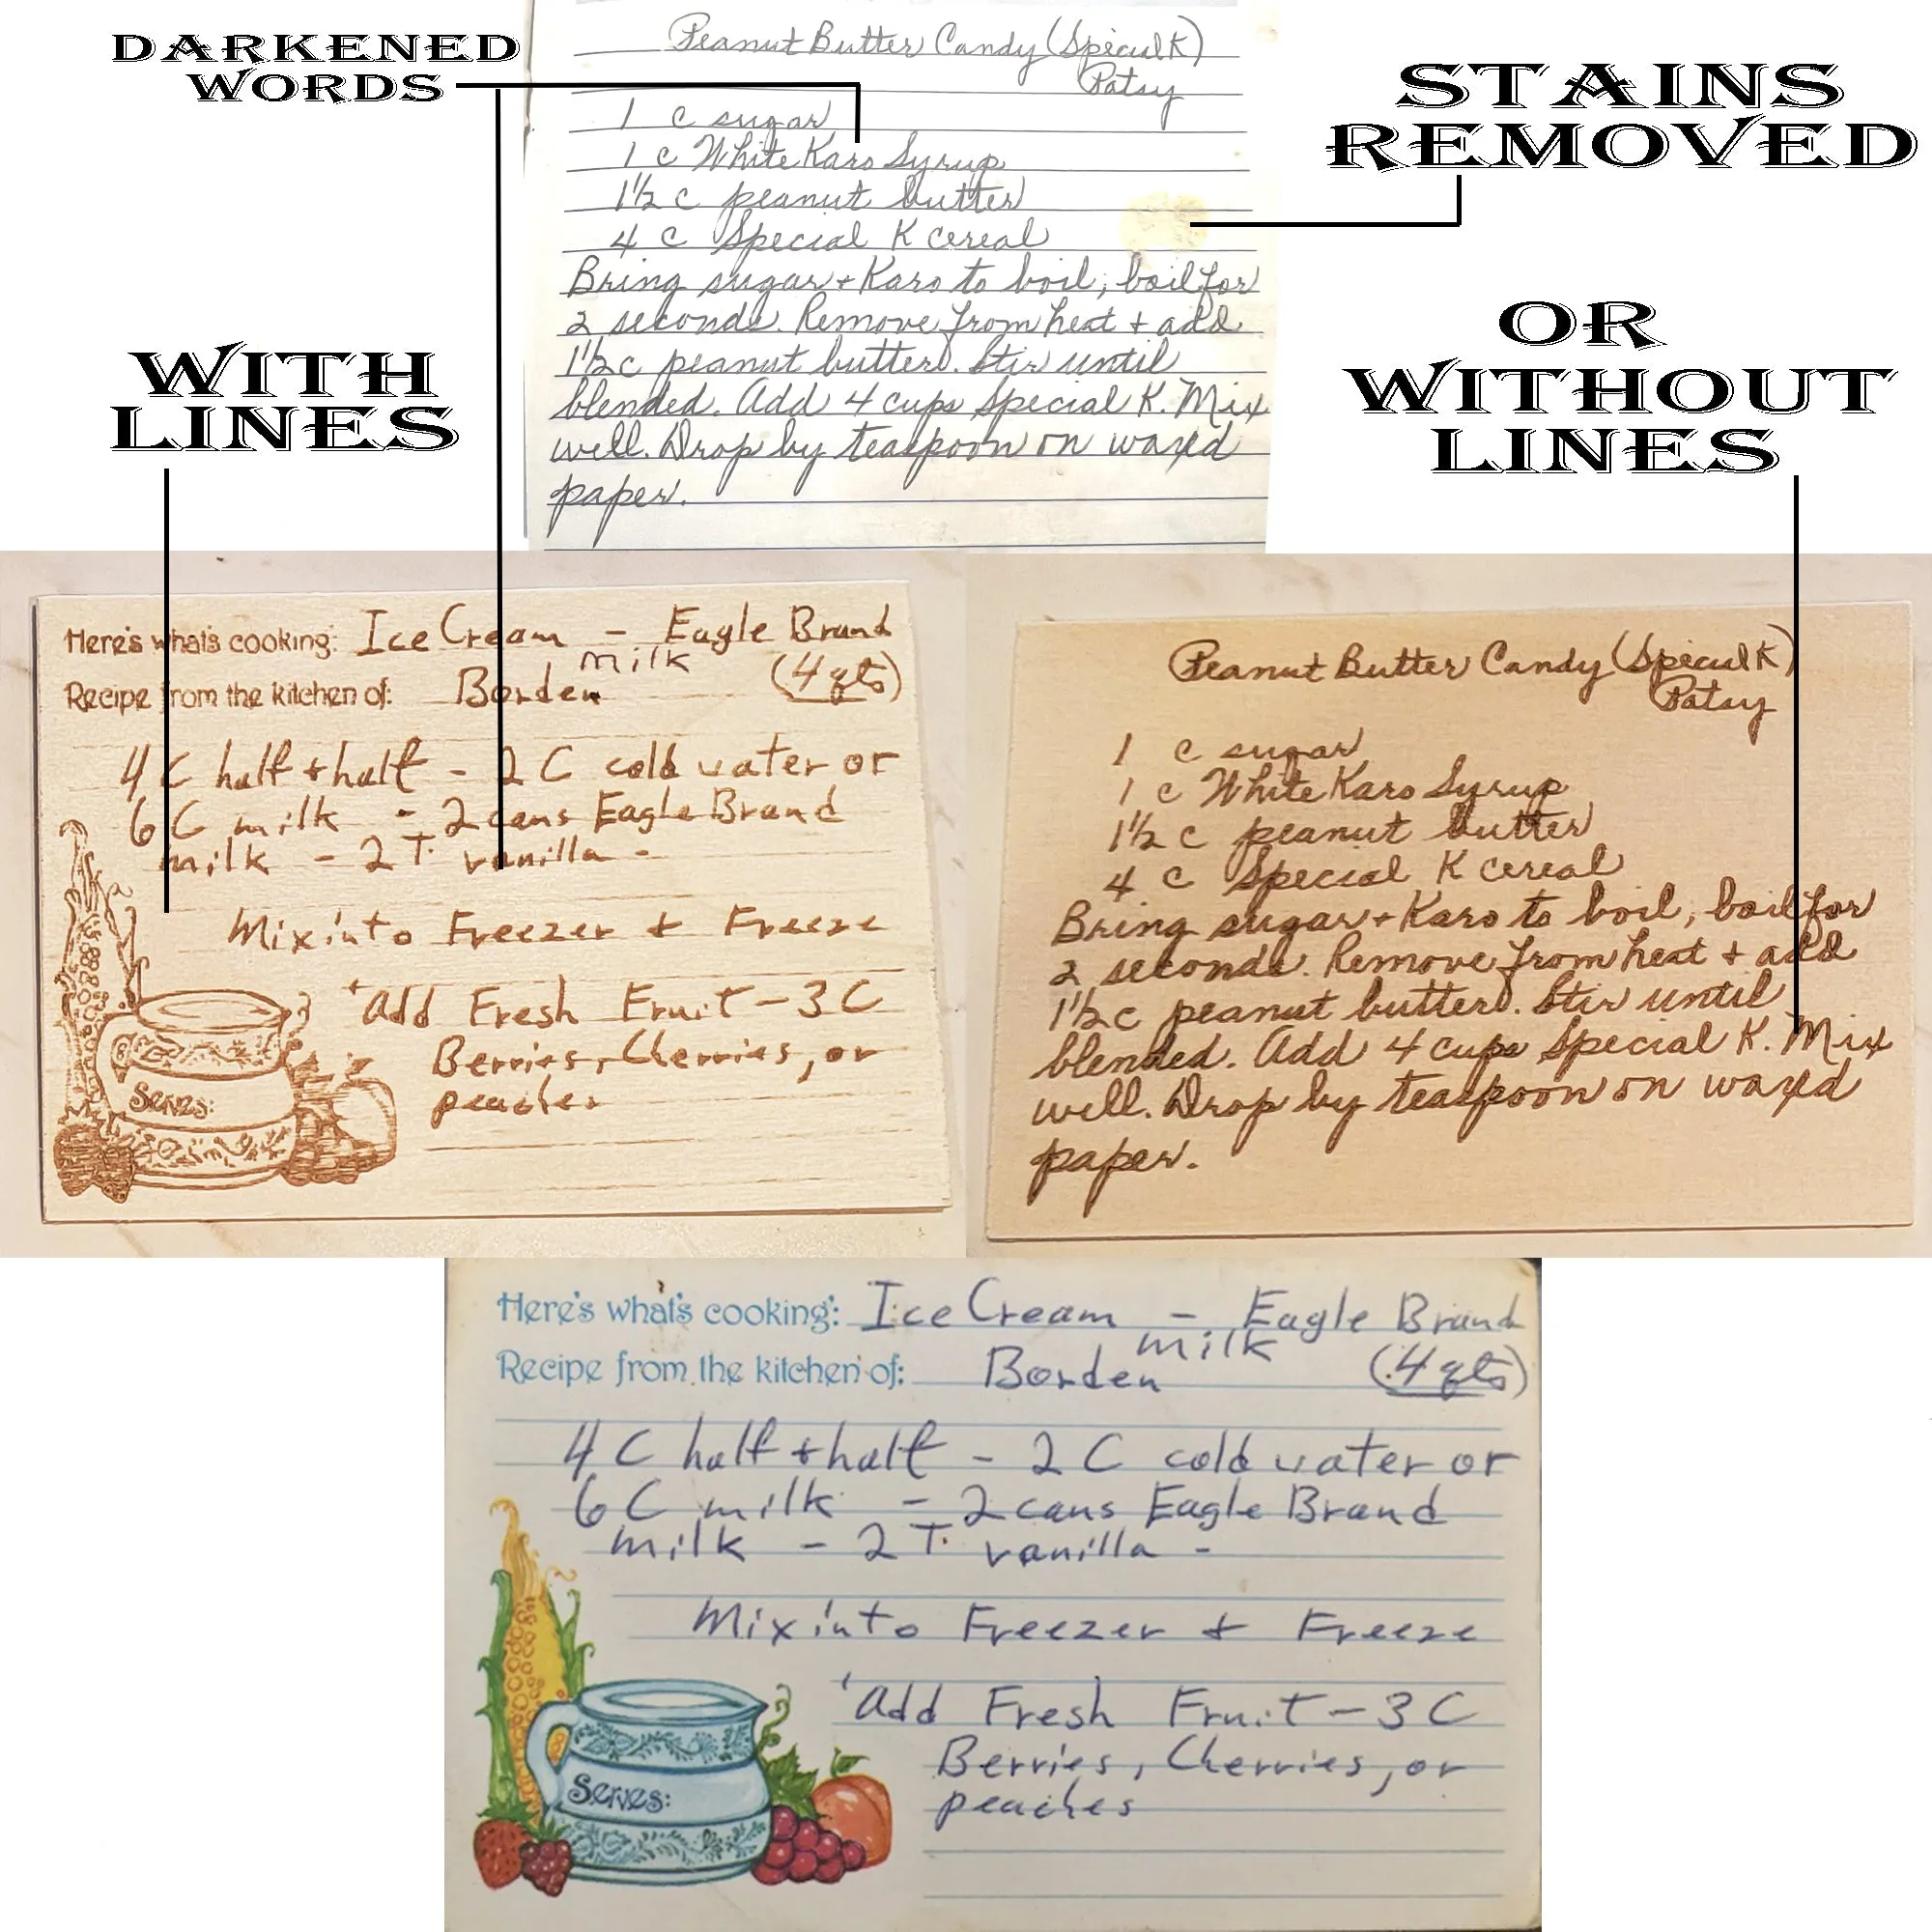 DARKENED
WORDS
STAINS
REMOVED
WITH
LINES
OR
WITHOUT
LINES
Peanut Butter Candy (Special K)
Patsy
1 c sugar
1 c White Karo Syrup
1 1/2 c peanut butter
4 c Special K cereal
Bring sugar + Karo to boil; boil for
2 seconds. Remove from heat + add
1 1/2 c peanut butter. Stir until
blended. Add 4 cups Special K. Mix
well. Drop by teaspoon on waxed
paper.
Here's what's cooking: Ice Cream - Eagle Brand
milk
Recipe from the kitchen of: Borden (4 qts)
4 C half + half - 2 C cold water or
6 C milk - 2 cans Eagle Brand
milk - 2 T. vanilla -
Mix into Freezer + Freeze
Add Fresh Fruit - 3 C
Berries, Cherries, or
peaches
Serves:
Peanut Butter Candy (Special K)
Patsy
1 c sugar
1 c White Karo Syrup
1 1/2 c peanut butter
4 c Special K cereal
Bring sugar + Karo to boil; boil for
2 seconds. Remove from heat + add
1 1/2 c peanut butter. Stir until
blended. Add 4 cups Special K. Mix
well. Drop by teaspoon on waxed
paper.
Here's what's cooking: Ice Cream - Eagle Brand
milk
Recipe from the kitchen of: Borden (4 qts)
4 C half + half - 2 C cold water or
6 C milk - 2 cans Eagle Brand
milk - 2 T. vanilla -
Mix into Freezer + Freeze
Add Fresh Fruit - 3 C
Berries, Cherries, or
peaches
Serves: